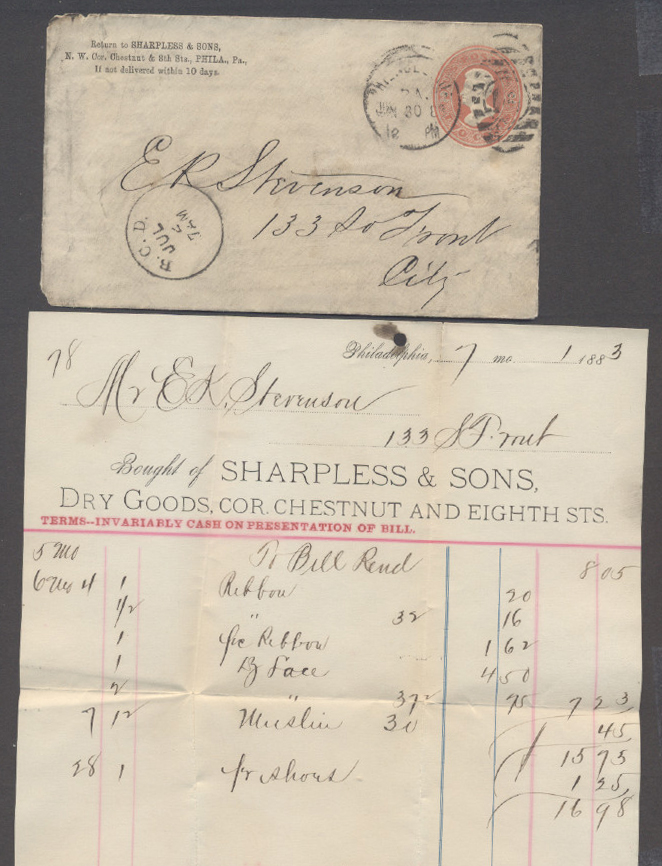 Return to SHARPLESS & SONS,
N. W. Cor. Chestnut & 8th Sts., PHILA., Pa.,
If not delivered within 10 days.
JUN 30
12 PM
E K Stevenson
133 So Front
City
R. C. D.
JUL
2
7 AM
78
Philadelphia, 7 mo. 1 1883
Mr E K. Stevenson
133 S Front
Bought of SHARPLESS & SONS,
DRY GOODS, COR. CHESTNUT AND EIGHTH STS.
TERMS--INVARIABLY CASH ON PRESENTATION OF BILL.
5 Mo To Bill Rend 8 05
6 Mo 4 1 Ribbon 20
1/2 " 32 16
1 pc Ribbon 1 62
1 Lace 4 50
2 " 37½ 75 7 23
7 1½ Muslin 30 45
15 73
28 1 pr Shoes 1 25
16 98